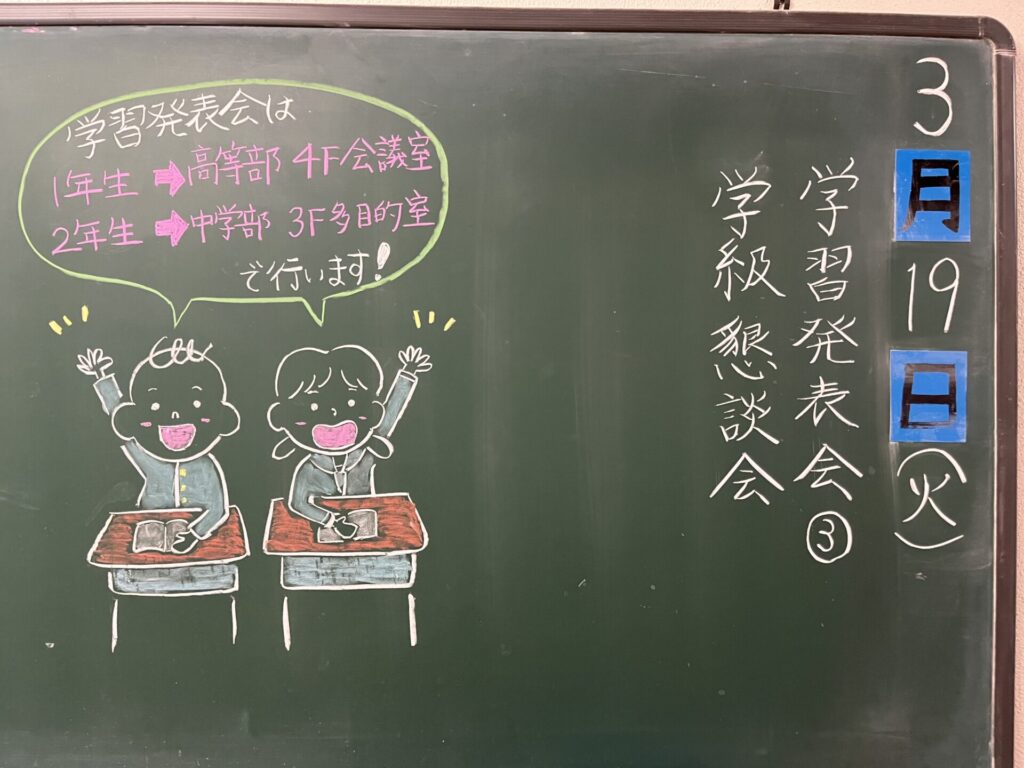 3月19日(火)
学習発表会③
学級懇談会
学習発表会は
1年生 ➡ 高等部 4F会議室
2年生 ➡ 中学部 3F多目的室
で行います!